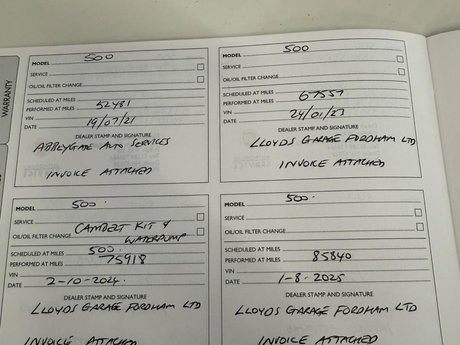 WARRANTY
MODEL 500
SERVICE
OIL/OIL FILTER CHANGE
SCHEDULED AT MILES
PERFORMED AT MILES 52481
VIN
DATE 19/07/21
DEALER STAMP AND SIGNATURE
ABBEYGATE AUTO SERVICES
INVOICE ATTACHED
MODEL 500
SERVICE
OIL/OIL FILTER CHANGE
SCHEDULED AT MILES
PERFORMED AT MILES 67557
VIN
DATE 24/01/23
DEALER STAMP AND SIGNATURE
LLOYDS GARAGE FORDHAM LTD
INVOICE ATTACHED
MODEL 500
SERVICE CAMBELT KIT &
OIL/OIL FILTER CHANGE WATERPUMP
SCHEDULED AT MILES 500
PERFORMED AT MILES 75918
VIN
DATE 2-10-2024
DEALER STAMP AND SIGNATURE
LLOYDS GARAGE FORDHAM LTD
INVOICE ATTACHED
MODEL 500
SERVICE
OIL/OIL FILTER CHANGE
SCHEDULED AT MILES
PERFORMED AT MILES 85840
VIN
DATE 1-8-2025
DEALER STAMP AND SIGNATURE
LLOYDS GARAGE FORDHAM LTD
INVOICE ATTACHED